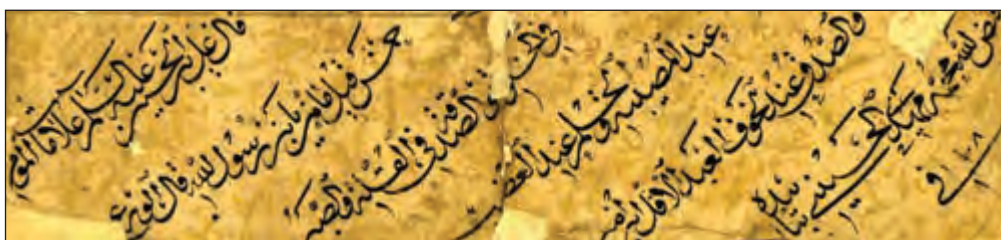 قال علي بن الحسين عليه السلام علامات المؤمن
خمس قيل فما هن يا بن رسول الله قال الورع
في الخلوة والصدقة في القلة والصبر
عند المصيبة والحلم عند الغضب
والصدق عند الخوف العبد الاقل
محمد الحسيني
في